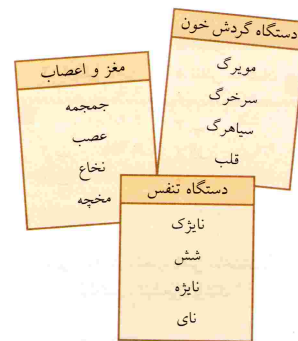 دستگاه گردش خون
مویرگ
سرخرگ
سیاهرگ
قلب
مغز و اعصاب
جمجمه
عصب
نخاع
مخچه
دستگاه تنفس
نایژک
شش
نایژه
نای